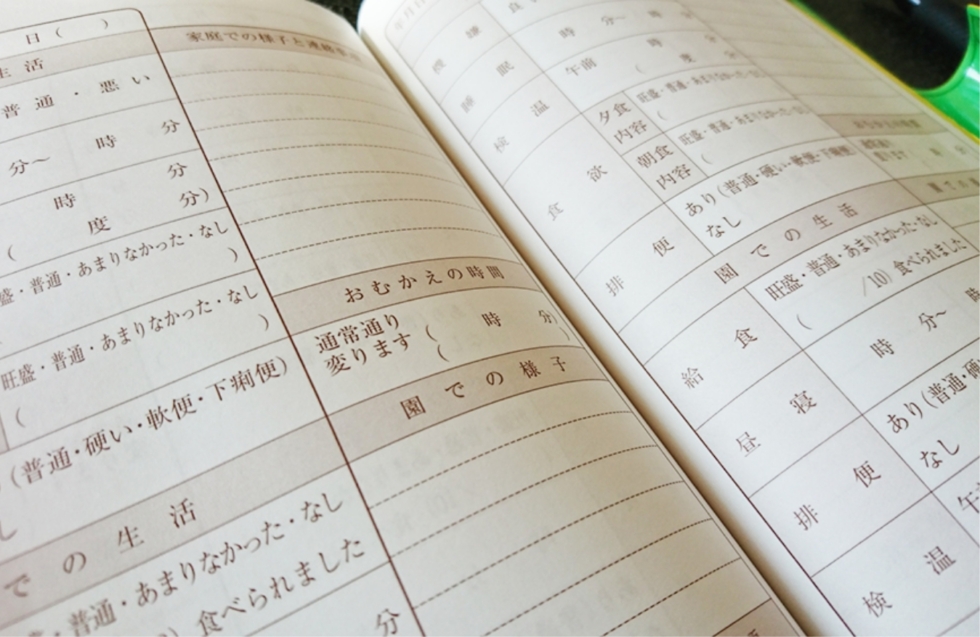 日( )
生活
普通・悪い
分～ 時 分
時 分
( 度 分)
盛・普通・あまりなかった・なし
)
旺盛・普通・あまりなかった・なし
( )
(普通・硬い・軟便・下痢便)
での生活
普通・あまりなかった・なし
食べられました
分
家庭での様子と連絡
おむかえの時間
通常通り ( 時 分)
変ります (
園での様子
機嫌
睡眠 時 分～ 時
検温 午前 ( 時 度
食欲 夕食 旺盛・普通・あまりなかった・なし
内容 (
朝食 旺盛・普通・あまりなかった・なし
内容 (
排便 あり(普通・硬い・軟便・下痢便
なし
園での生活
給食 旺盛・普通・あまりなかった・なし
( /10) 食べられました
昼寝 時 分～ 時
排便 あり(普通・硬
なし
検温 午